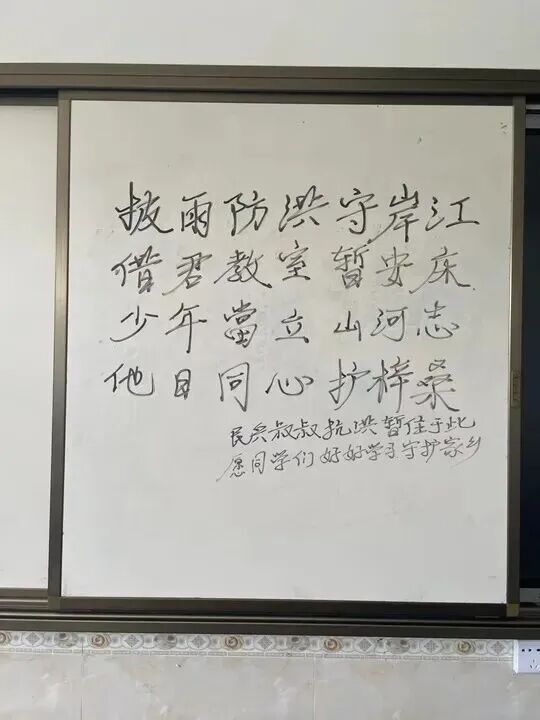 披雨防洪守岸江
借君教室暂安床
少年當立山河志
他日同心护梓桑
民兵叔叔抗洪暂住于此
愿同学们好好学习守护家乡